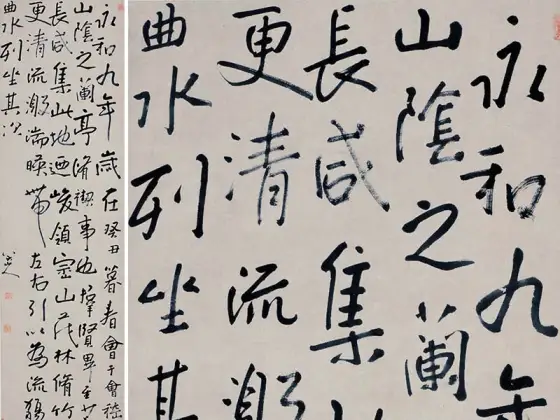 永和九年歲在癸丑暮春會于會稽
山陰之蘭亭脩禊事也羣賢畢至少
長咸集此地迺峻領崇山茂林脩竹
更清流激湍暎帶左右引以為流觴
曲水列坐其次
八大山人
永和九年
山陰之蘭
長咸集
更清流激
曲水列坐其